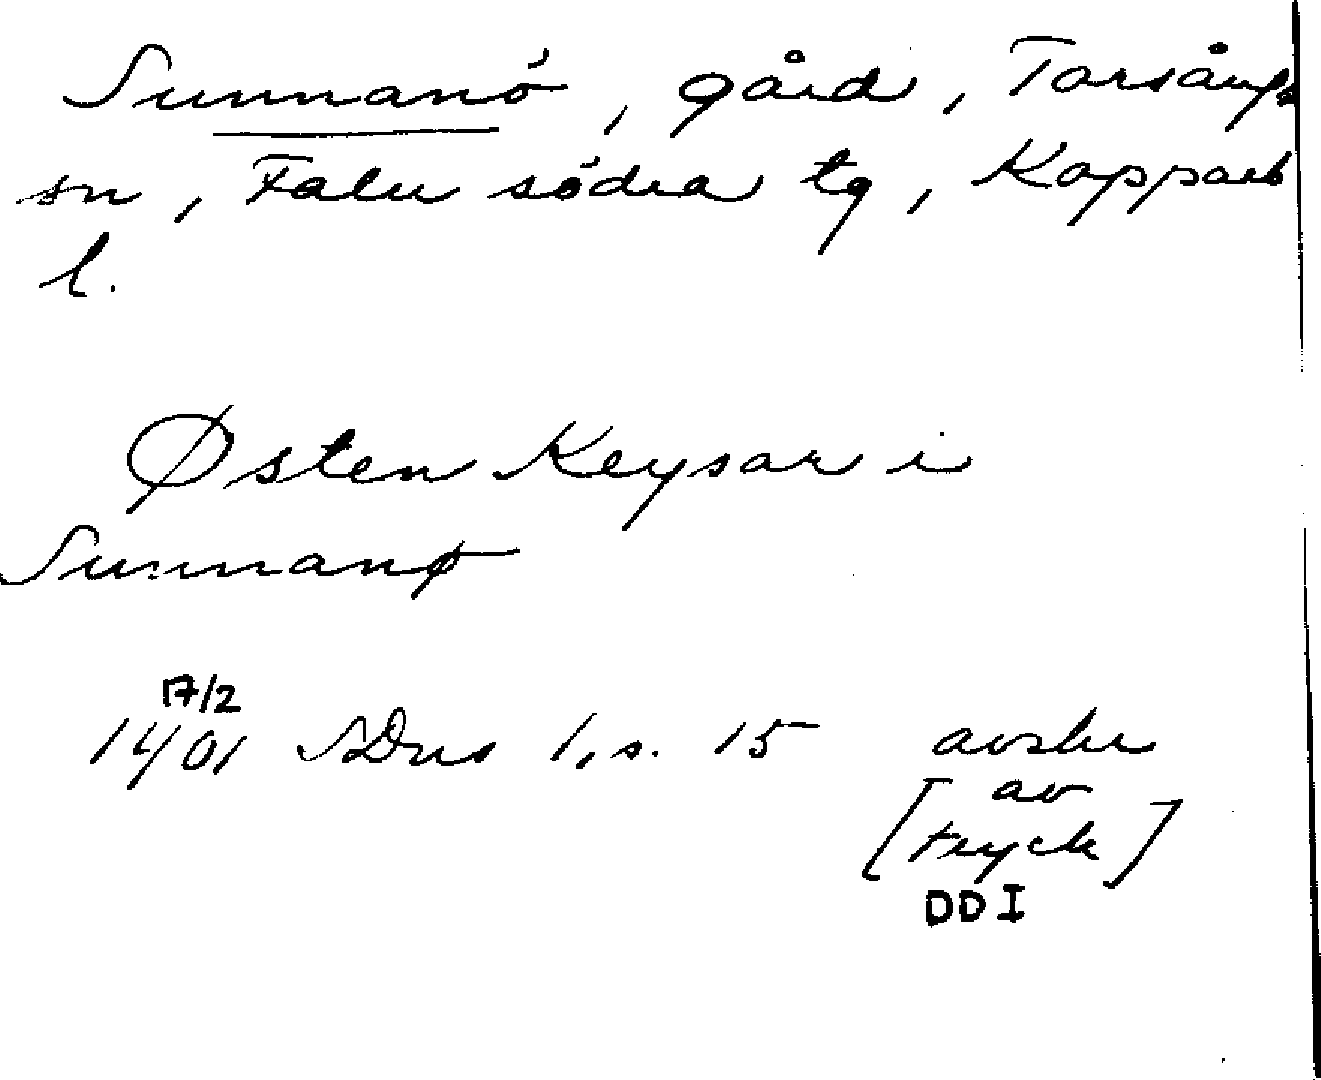 Sunnanö, gård, Torsångs
sn, Falu södra tg, Kopparb
l.
Østen Keysar i
Sunnanø
17/2
1401 SDns 1, s. 15 avskr
av
[tryck]
DD I